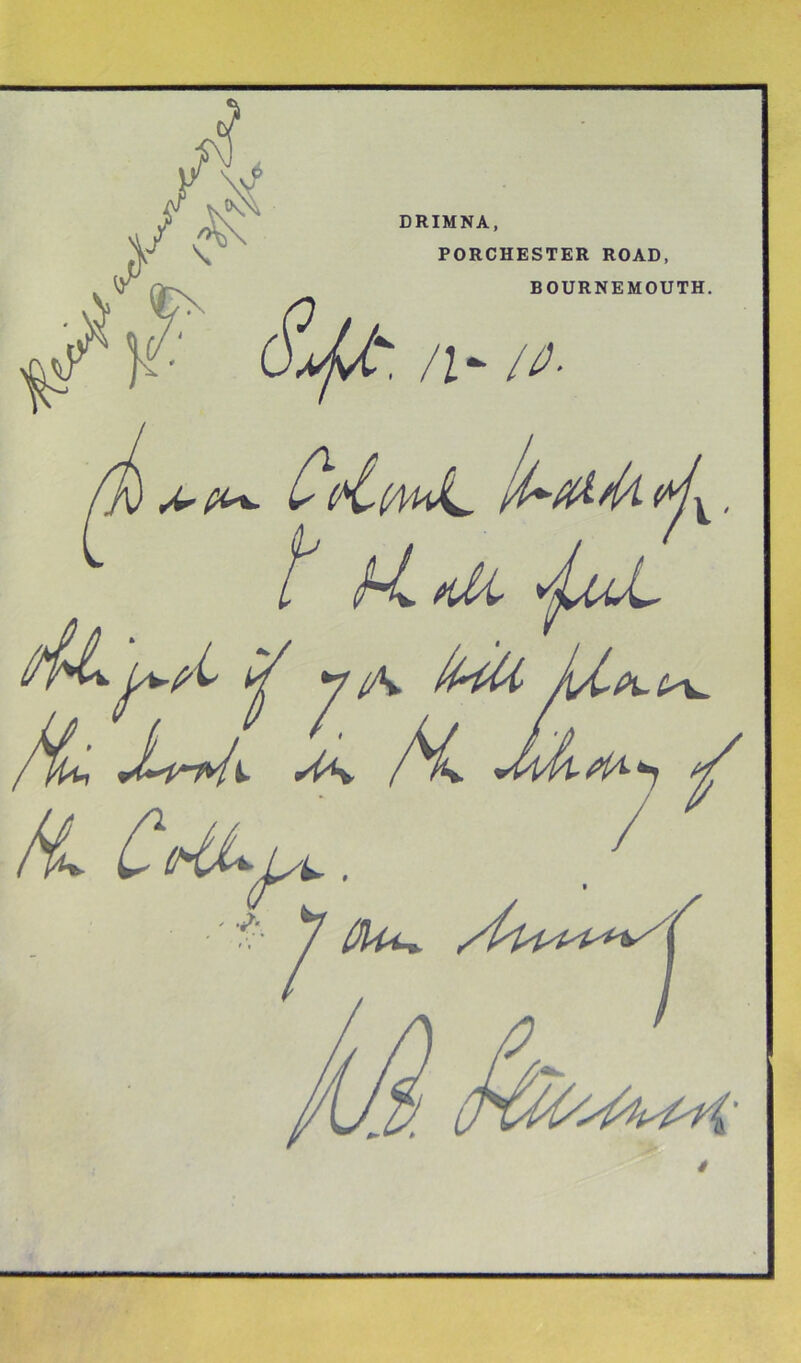 Receipt acknowledged
13/9/10
DRIMNA,
PORCHESTER ROAD,
BOURNEMOUTH.
Sept. 12 - 10.
Dear Colonel Wardrop.
I shall feel
obliged if you will place
this book in the library of
the College.
Yours sincerely
W.B.